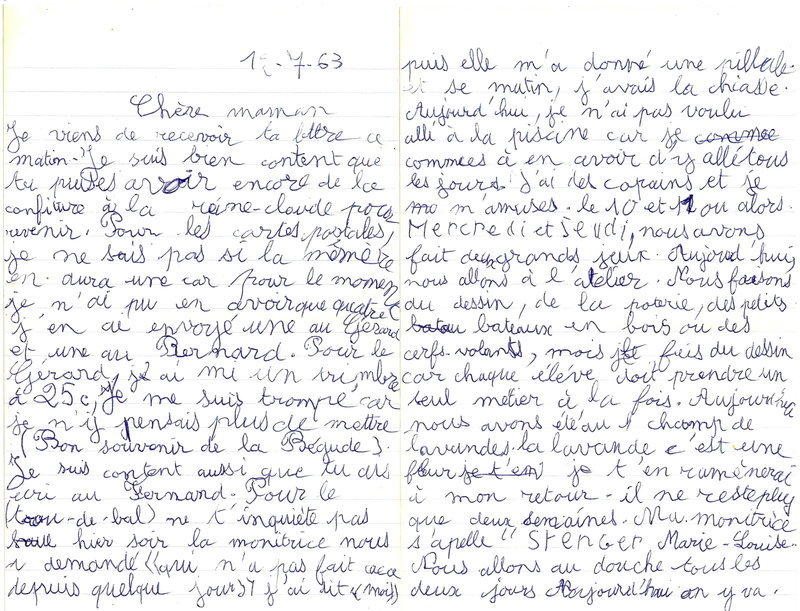 12-7-63
Chère maman
Je viens de recevoir ta lettre ce
matin. Je suis bien content que
tu puises avoir encore de la
confiture à la reine-claude pour
revenir. Pour les cartes postales,
je ne sais pas si la mémère
en aura une car pour le momen
je n'ai pu en avoir que quatre et
j'en ai envoyé une au Gérard
et une au Bernard. Pour le
Gérard, j'ai mi un trimbre
à 25c, Je me suis trompé car
je n'y pensais plus de mettre
(Bon souvenir de la Bégude).
Je suis content aussi que tu as
écri au Fernand. Pour le
(trou-de-bal) ne t'inquiète pas
hier soir la monitrice nous
a demandé "qui n'a pas fait caca
depuis quelque jours" j'ai dit "(moi)"
puis elle m'a donné une pillule.
et se matin, j'avais la chiasse.
Aujourd'hui, je n'ai pas voulu
allé à la piscine car je comme
commees à en avoir d'y allé tous
les jours. J'ai des copains et je
mo m'amuses. le 10 et 11 ou alors.
Mercredi et Jeudi, nous avons
fait deux grands jeux. Aujourd'hui,
nous allons à l'atelier. Nous faisons
du dessin, de la poterie, des petits
batau bateaux en bois ou des
cerfs-volants, mois je fais du dessin
car chaque élève doit prendre un
seul métier à la fois. Aujourd'hui
nous avons été au champ de
lavandes. la lavande c'est une
fleur je t'en je t'en ramènerai
à mon retour - il ne reste plus
que deux semaines. Ma monitrice
s'apelle "Stenger Marie-Louise.
Nous allons au douche tous les
deux jours Aujourd'hui on y va.